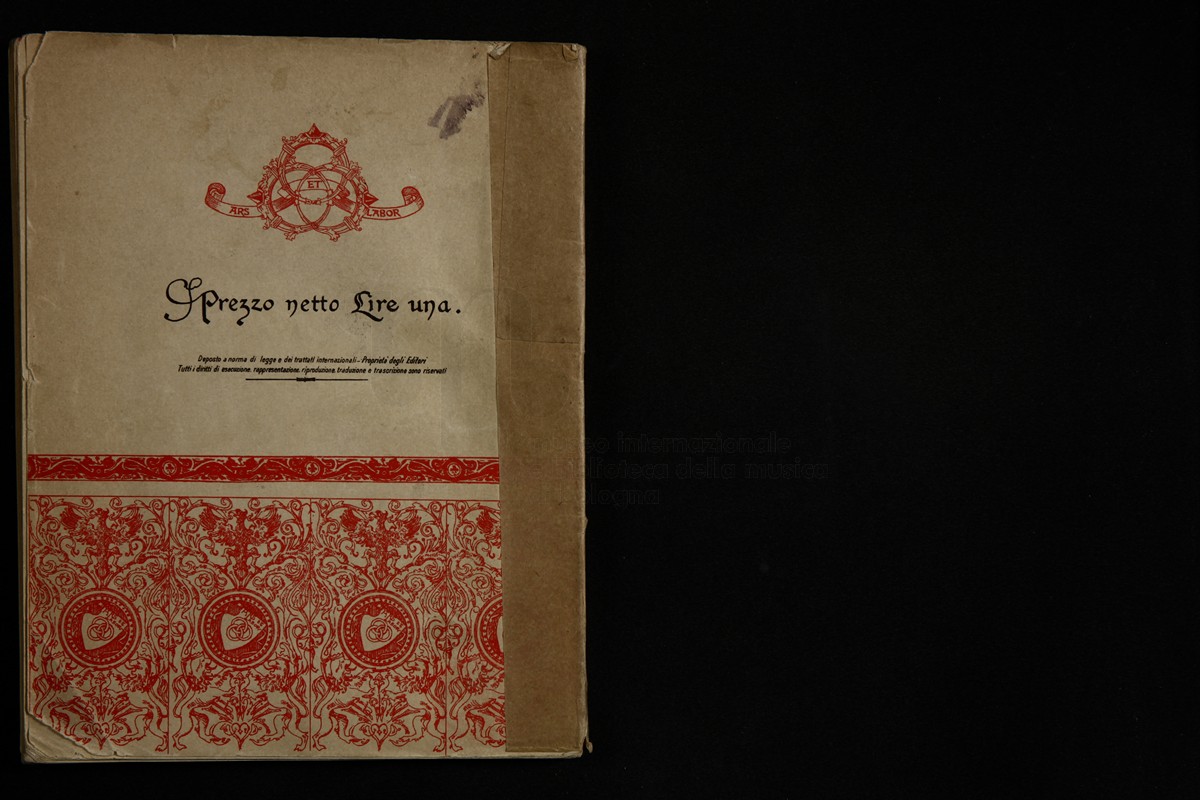 ARS ET LABOR
Prezzo netto Lire una.
Deposto a norma di legge e dei trattati internazionali - Proprietà degli Editori
Tutti i diritti di esecuzione, rappresentazione, riproduzione, traduzione e trascrizione sono riservati
internazionale
della musica